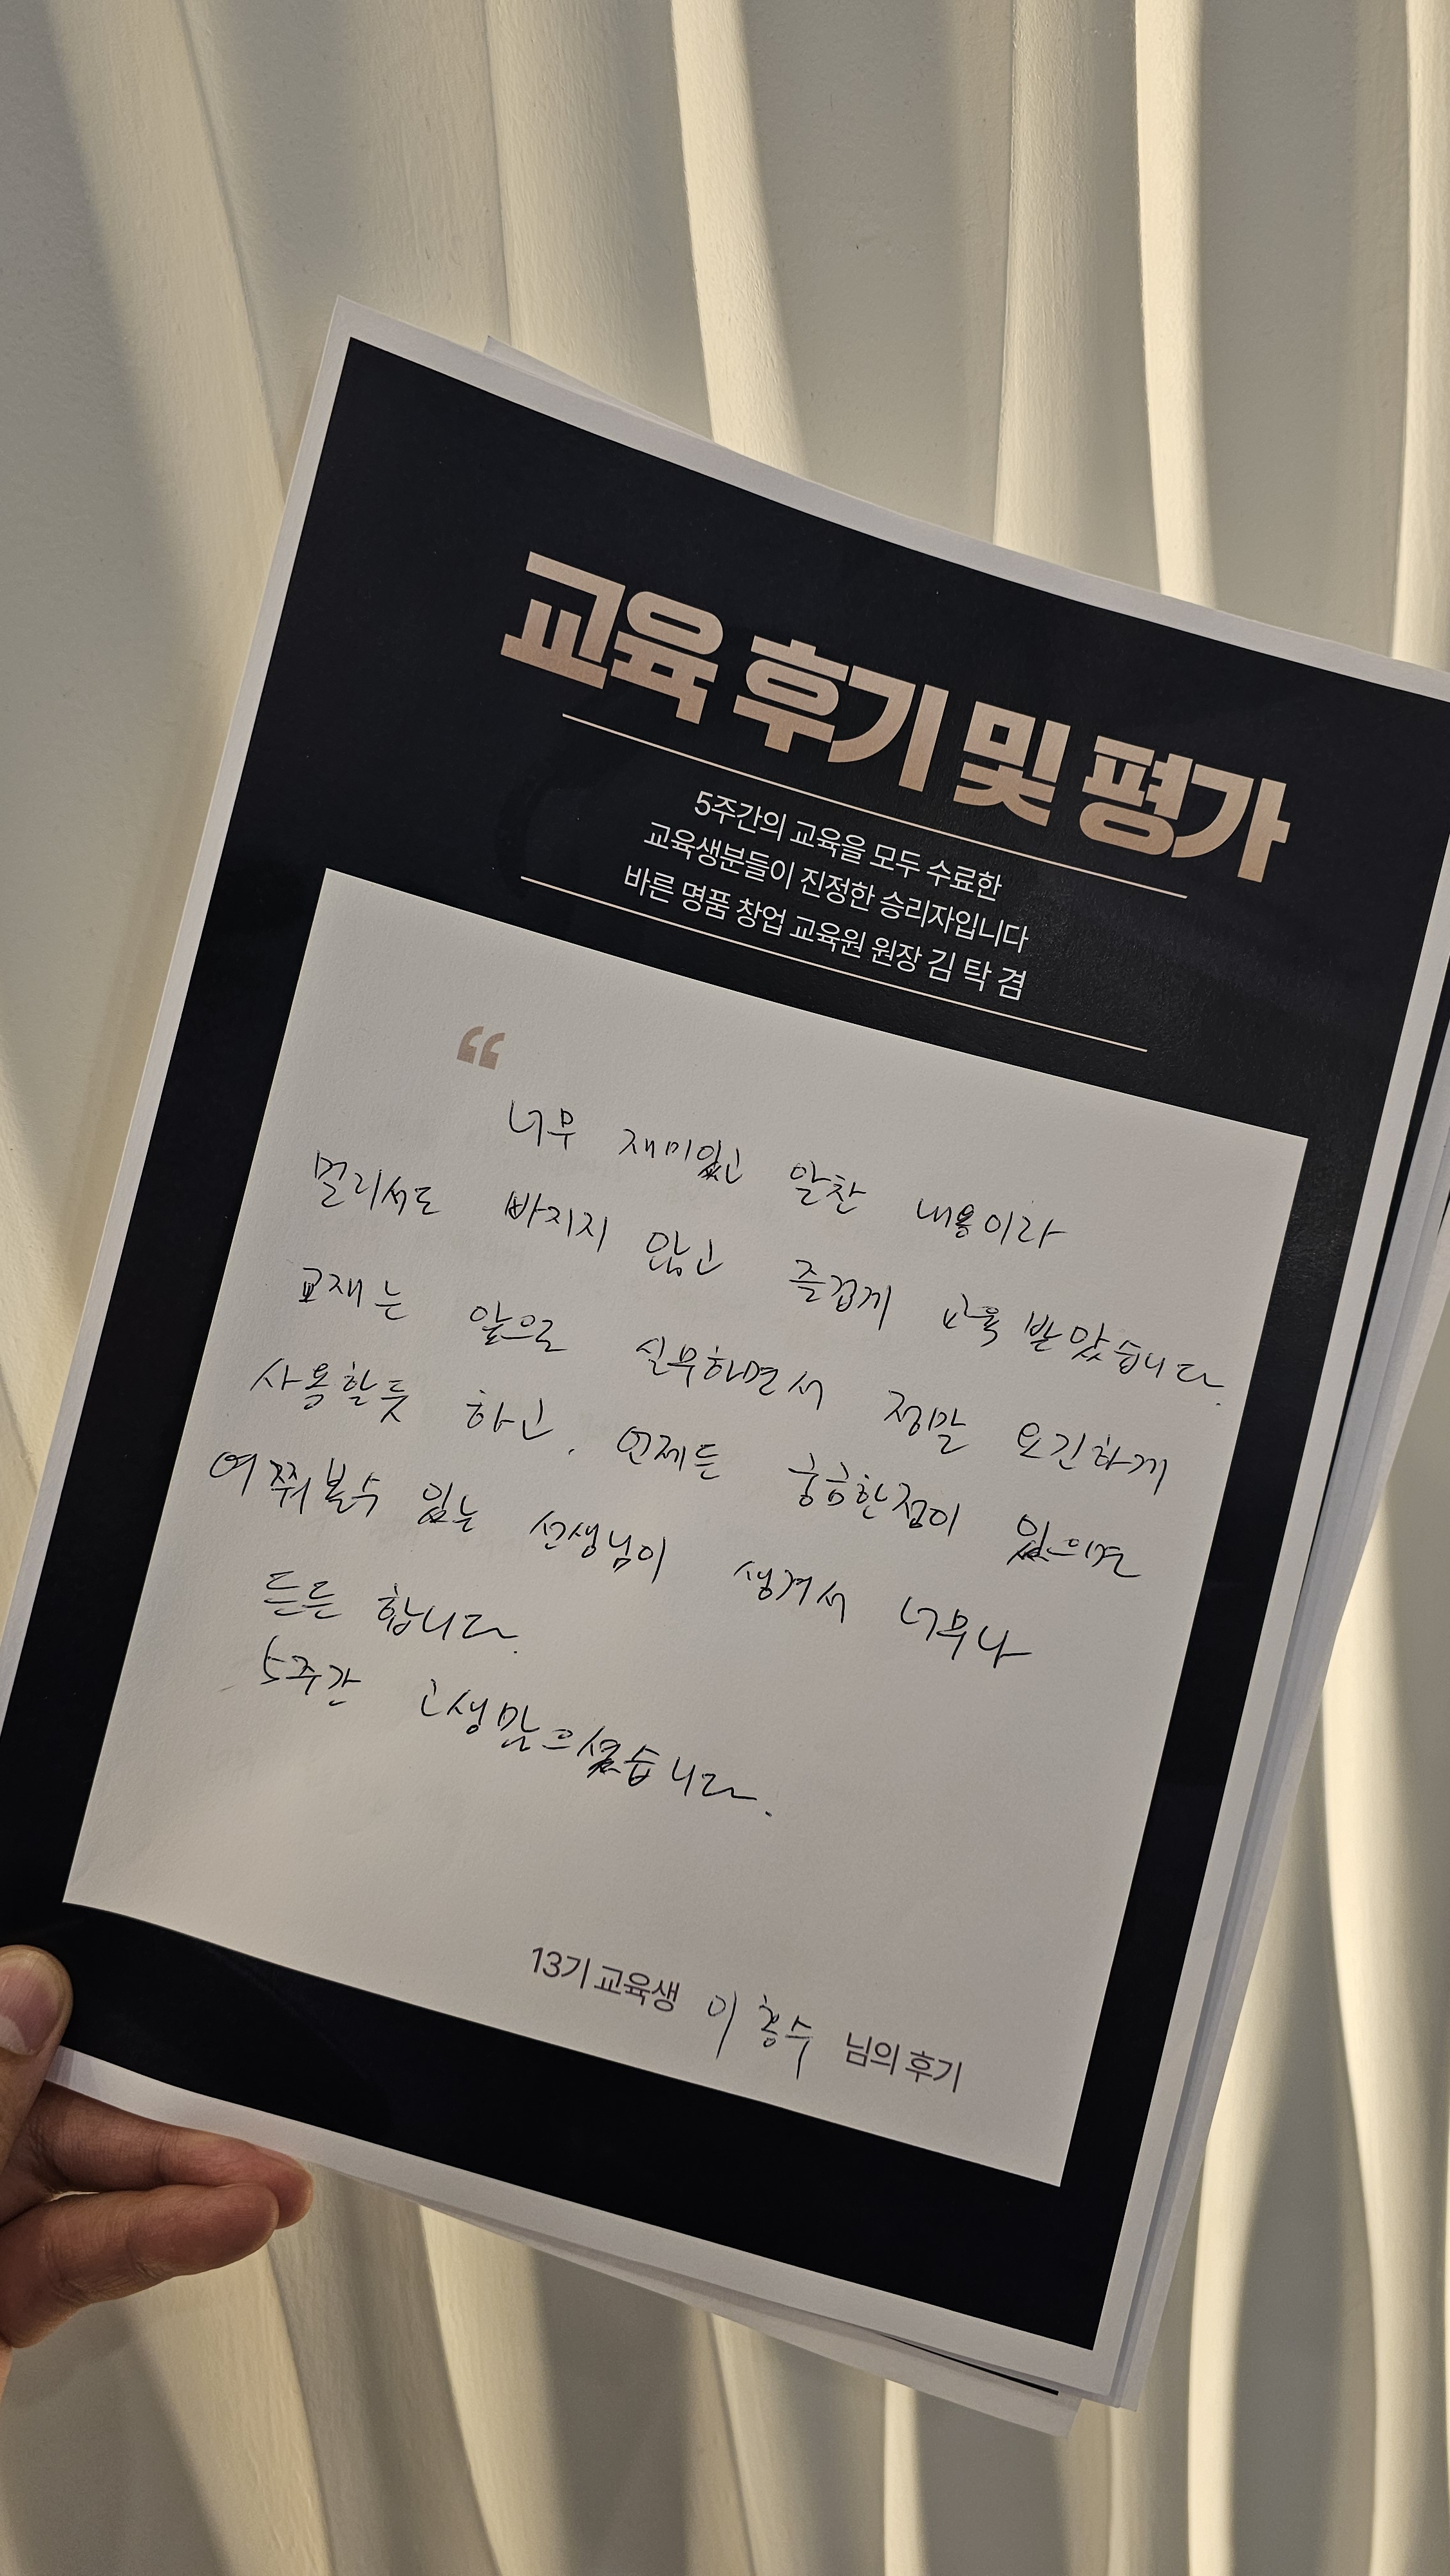 교육 후기 및 평가
5주간의 교육을 모두 수료한
교육생분들이 진정한 승리자입니다
바른 명품 창업 교육원 원장 김 탁 겸
“
너무 재미있고 알찬 내용이라
멀리서도 빠지지 않고 즐겁게 교육 받았습니다.
교재는 앞으로 실무하면서 정말 요긴하게
사용할듯 하고, 언제든 궁금한점이 있으면
여쭤볼수 있는 선생님이 생겨서 너무나
든든 합니다.
5주간 고생많으셨습니다.
13기 교육생 이흥수 님의 후기